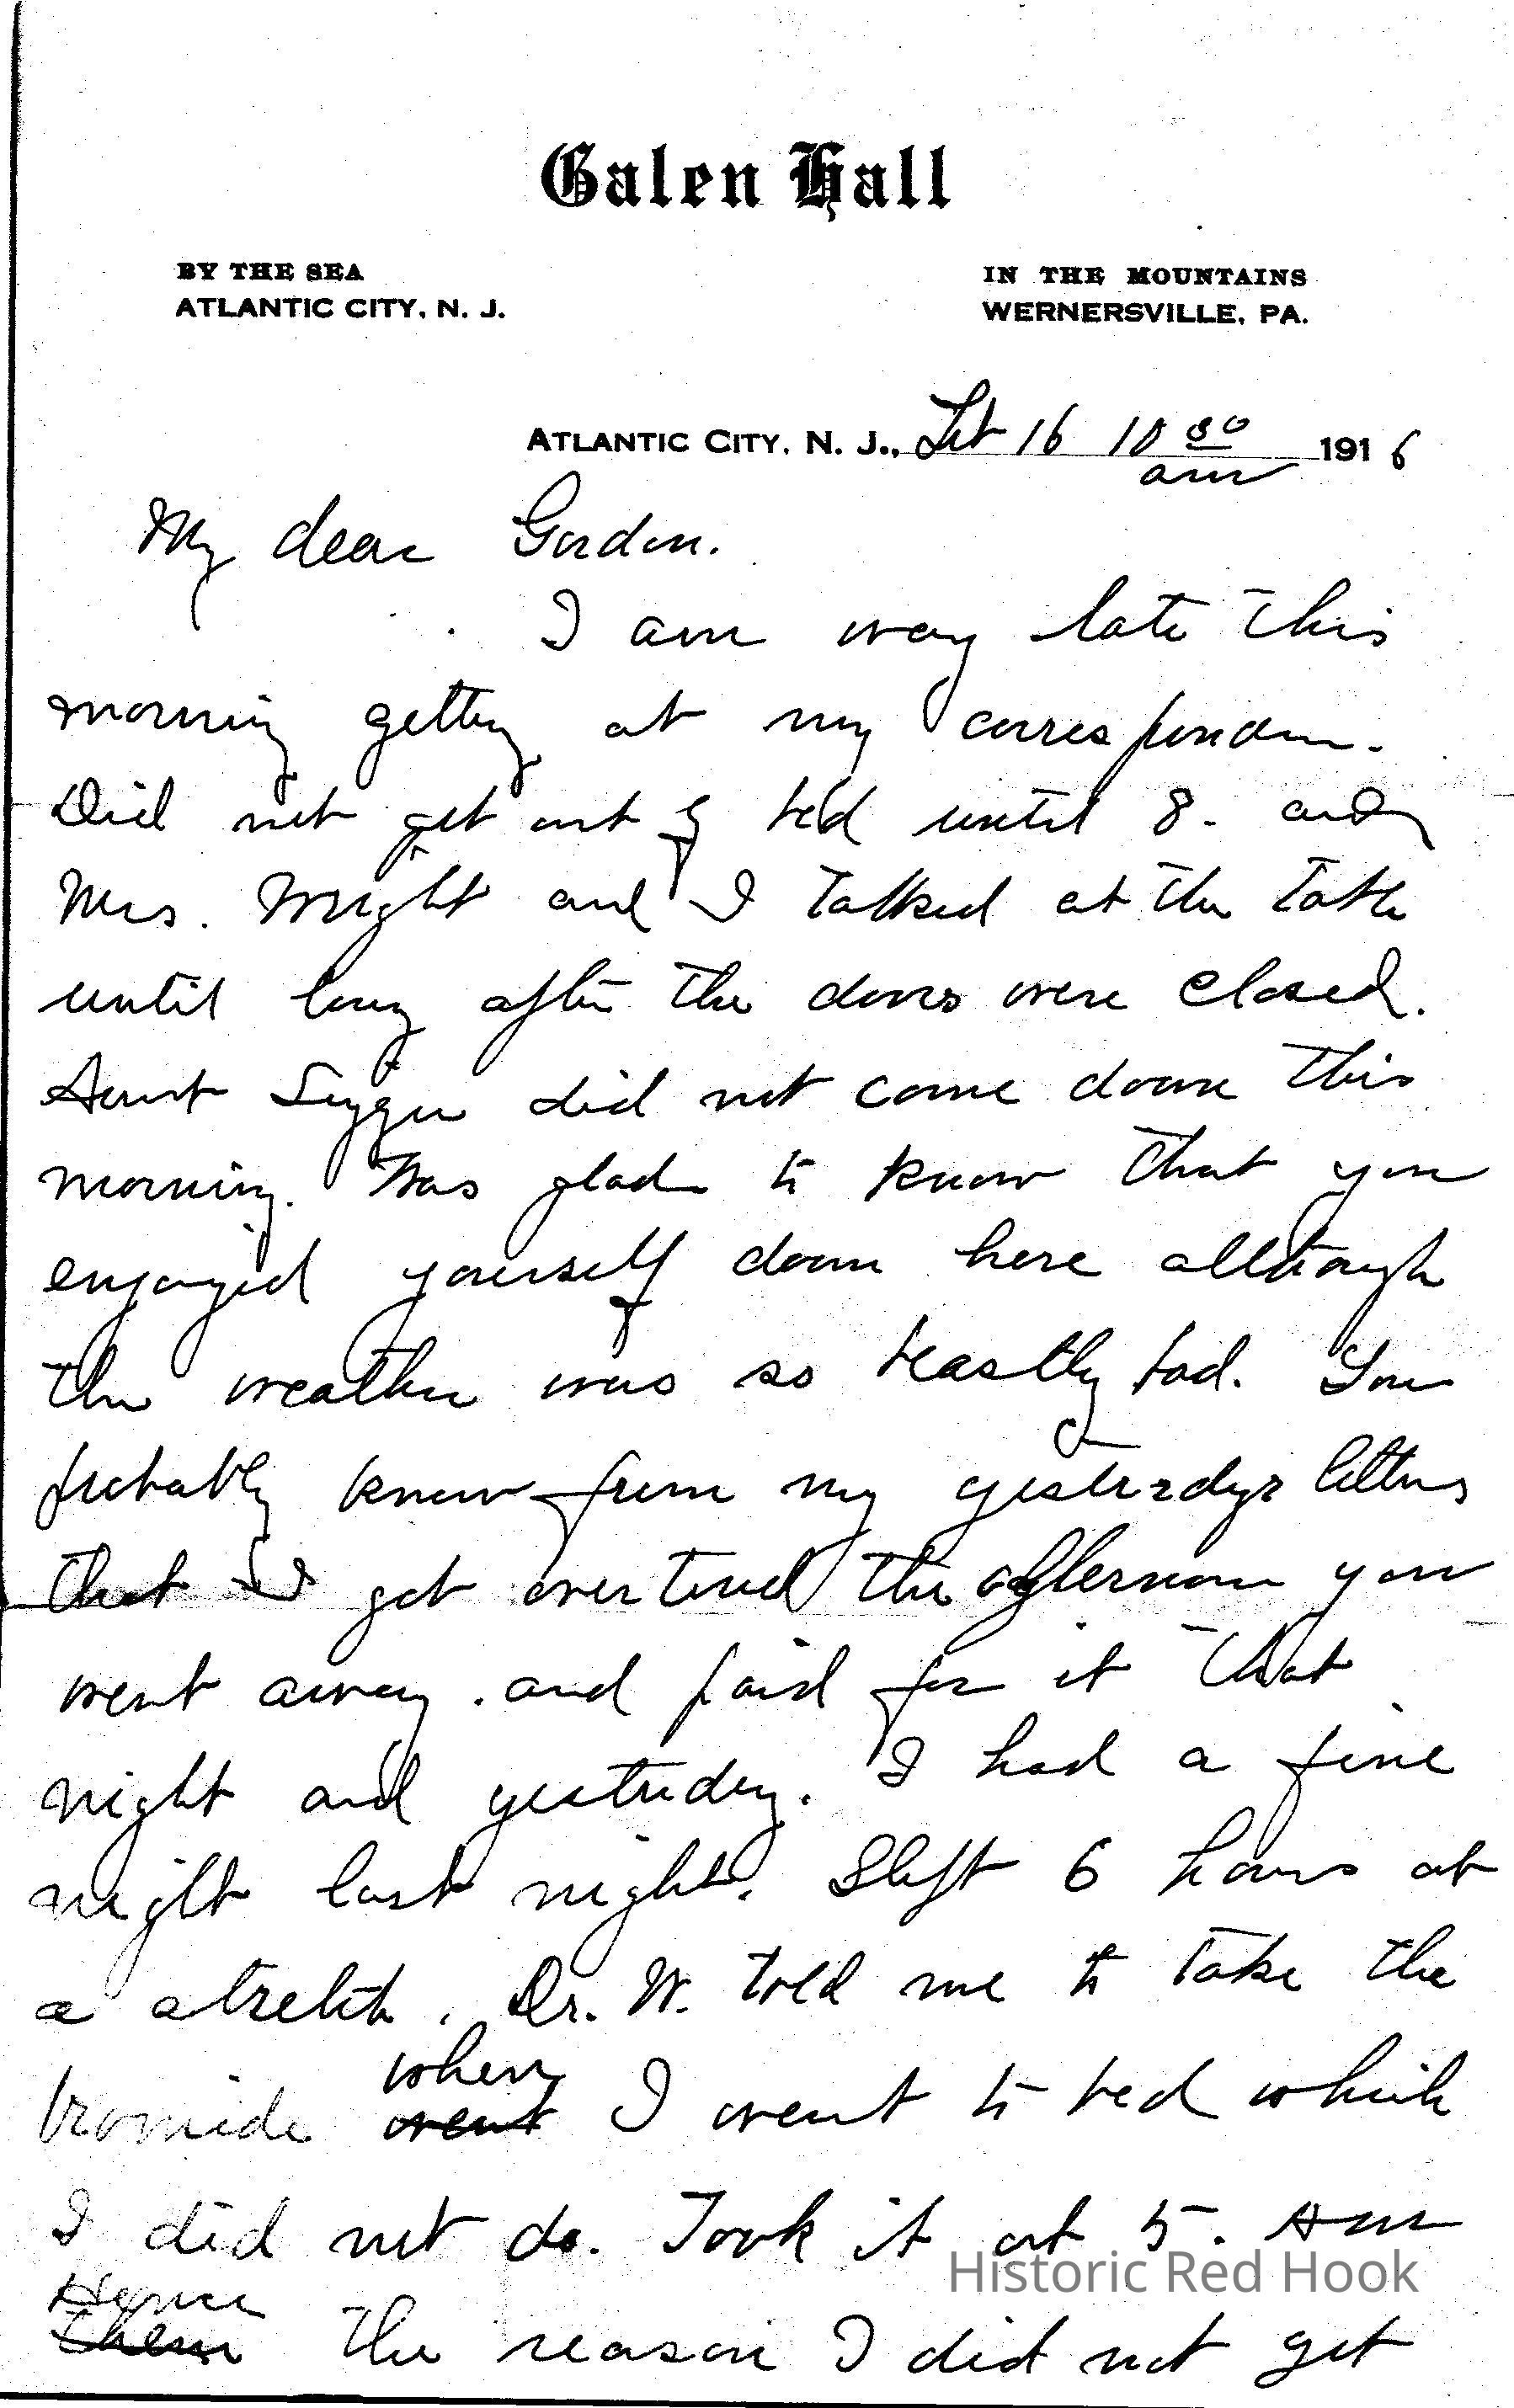 Galen Hall
BY THE SEA
ATLANTIC CITY, N. J.
IN THE MOUNTAINS
WERNERSVILLE, PA.
ATLANTIC CITY, N. J., Feb 16 10 30 am 1916
My dear Gordon.
I am way late this
morning getting at my correspondence.
Did not get out of bed until 8. and
Mrs. Wright and I talked at the table
until long after the doors were closed.
Aunt did not come down this
morning. Was glad to know that you
enjoyed yourself down here although
the weather was so beastly bad. You
probably know from my yesterdys letters
that I got over tired the afternoon you
went away. and paid for it that
night and yesterday. I had a fine
night last night. Slept 6 hours at
a stretch. Dr. W. told me to take the
bromide when went I went to bed which
I did not do. Took it at 5. AM
Hence them the reason I did not get
Historic Red Hook